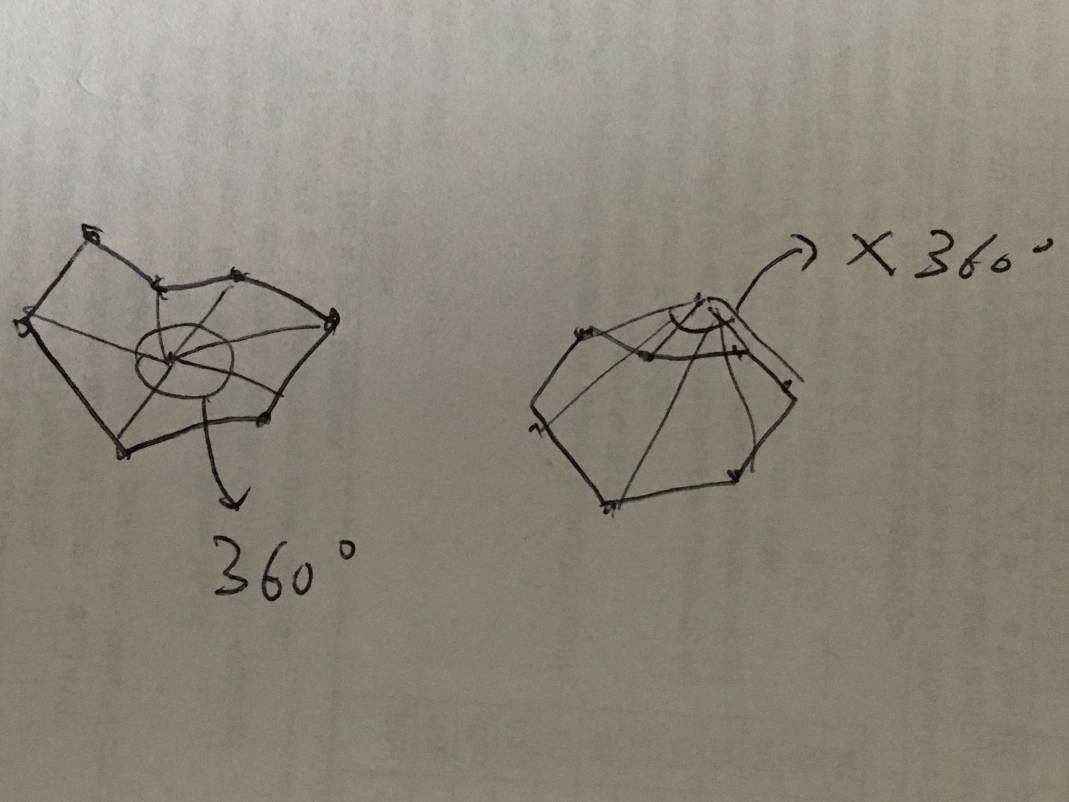 X 360°
360°